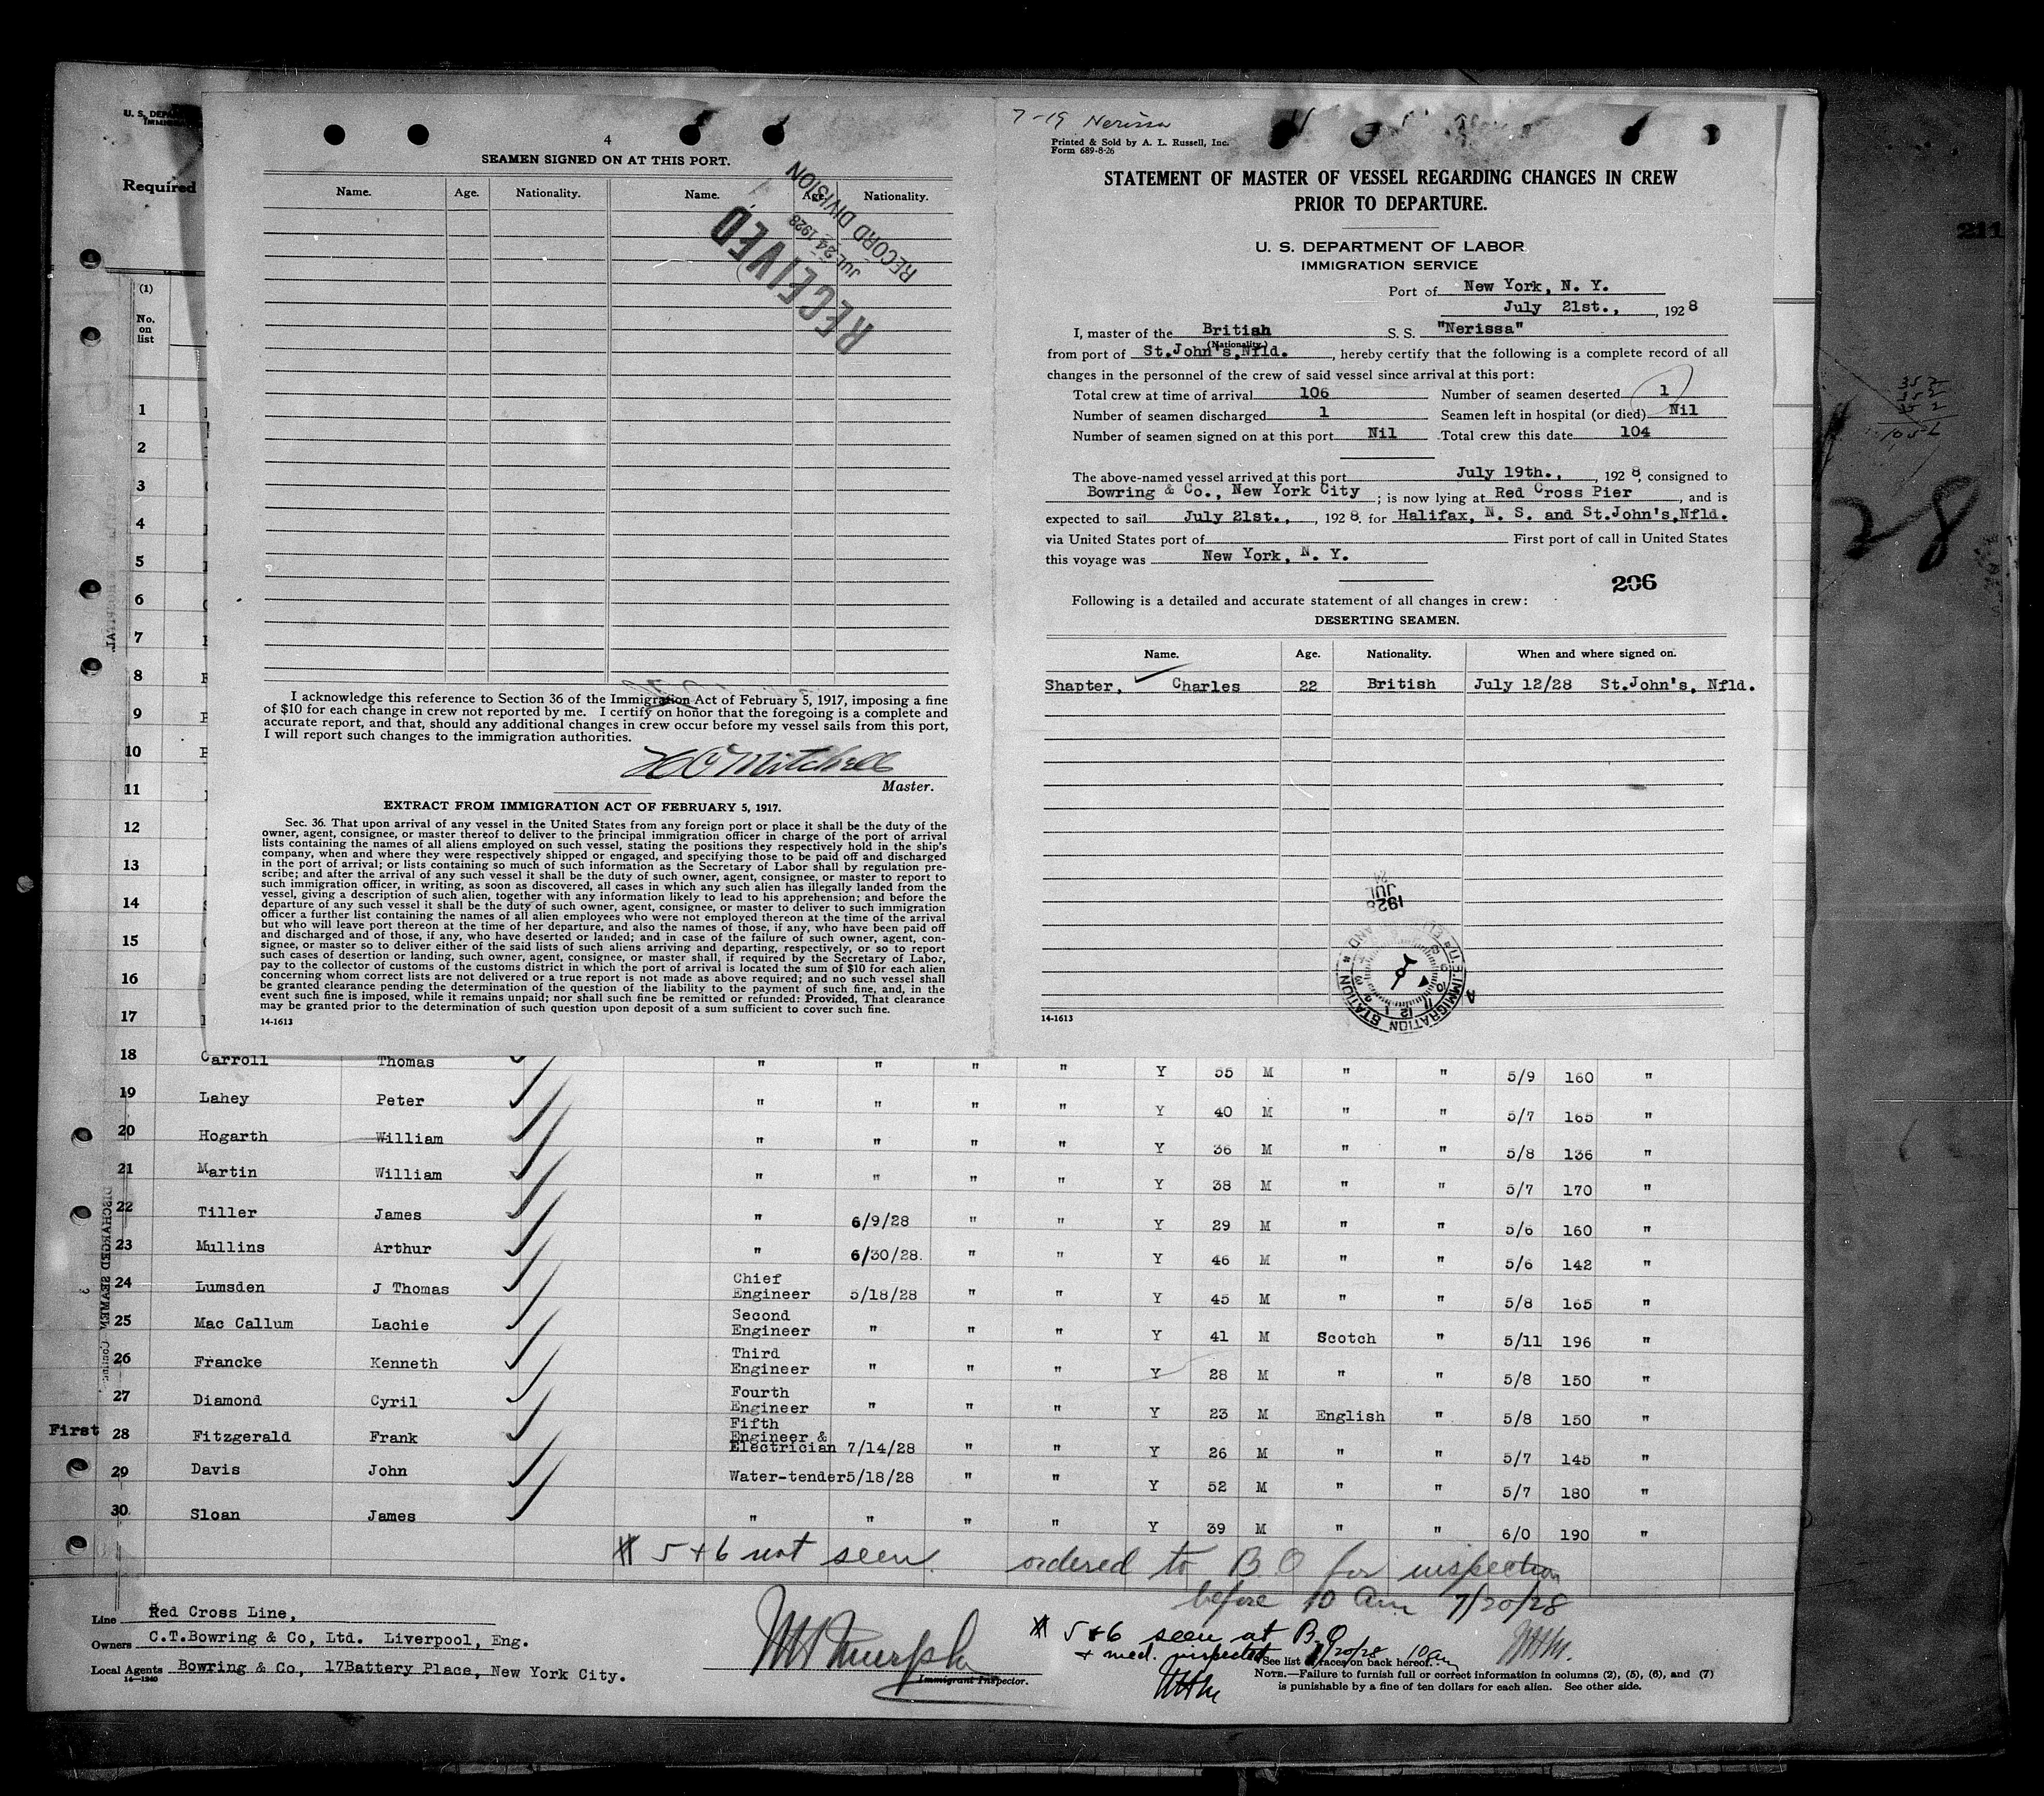 U. S. DEPA
Required
(1)
No.
on
list
4
SEAMEN SIGNED ON AT THIS PORT.
Name. Age. Nationality. Name. Age. Nationality.
RECEIVED
JUL 24 1928
RECORD DIVISION
I acknowledge this reference to Section 36 of the Immigration Act of February 5, 1917, imposing a fine
of $10 for each change in crew not reported by me. I certify on honor that the foregoing is a complete and
accurate report, and that, should any additional changes in crew occur before my vessel sails from this port,
I will report such changes to the immigration authorities.
Mitchell
Master.
EXTRACT FROM IMMIGRATION ACT OF FEBRUARY 5, 1917.
Sec. 36. That upon arrival of any vessel in the United States from any foreign port or place it shall be the duty of the
owner, agent, consignee, or master thereof to deliver to the principal immigration officer in charge of the port of arrival
lists containing the names of all aliens employed on such vessel, stating the positions they respectively hold in the ship's
company, when and where they were respectively shipped or engaged, and specifying those to be paid off and discharged
in the port of arrival; or lists containing so much of such information as the Secretary of Labor shall by regulation pre-
scribe; and after the arrival of any such vessel it shall be the duty of such owner, agent, consignee, or master to report to
such immigration officer, in writing, as soon as discovered, all cases in which any such alien has illegally landed from the
vessel, giving a description of such alien, together with any information likely to lead to his apprehension; and before the
departure of any such vessel it shall be the duty of such owner, agent, consignee, or master to deliver to such immigration
officer a further list containing the names of all alien employees who were not employed thereon at the time of the arrival
but who will leave port thereon at the time of her departure, and also the names of those, if any, who have been paid off
and discharged and of those, if any, who have deserted or landed; and in case of the failure of such owner, agent, con-
signee, or master so to deliver either of the said lists of such aliens arriving and departing, respectively, or so to report
such cases of desertion or landing, such owner, agent, consignee, or master shall, if required by the Secretary of Labor,
pay to the collector of customs of the customs district in which the port of arrival is located the sum of $10 for each alien
concerning whom correct lists are not delivered or a true report is not made as above required; and no such vessel shall
be granted clearance pending the determination of the question of the liability to the payment of such fine, and, in the
event such fine is imposed, while it remains unpaid; nor shall such fine be remitted or refunded: Provided, That clearance
may be granted prior to the determination of such question upon deposit of a sum sufficient to cover such fine.
14-1613
7-19 Nerissa
Printed & Sold by A. L. Russell, Inc.
Form 689-8-26
STATEMENT OF MASTER OF VESSEL REGARDING CHANGES IN CREW
PRIOR TO DEPARTURE.
U. S. DEPARTMENT OF LABOR
IMMIGRATION SERVICE
Port of New York, N. Y.
July 21st., , 1928
I, master of the British S. S. "Nerissa"
(Nationality.)
from port of St.John's,Nfld. , hereby certify that the following is a complete record of all
changes in the personnel of the crew of said vessel since arrival at this port:
Total crew at time of arrival 106 Number of seamen deserted 1
Number of seamen discharged 1 Seamen left in hospital (or died) Nil
Number of seamen signed on at this port Nil Total crew this date 104
The above-named vessel arrived at this port July 19th., , 1928, consigned to
Bowring & Co., New York City ; is now lying at Red Cross Pier , and is
expected to sail July 21st., , 1928. for Halifax, N. S. and St.John's,Nfld.
via United States port of First port of call in United States
this voyage was New York, N. Y.
206
Following is a detailed and accurate statement of all changes in crew:
DESERTING SEAMEN.
Name. Age. Nationality. When and where signed on.
Shapter, Charles 22 British July 12/28 St.John's, Nfld.
1928
JUL
24
IMMIGRATION STATION
14-1613
211
28
1
2
3
4
5
6
7
8
9
10
11
12
13
14
15
16
17
18 Carroll Thomas " " " " Y 55 M " " 5/9 160 "
19 Lahey Peter " " " " Y 40 M " " 5/7 165 "
20 Hogarth William " " " " Y 36 M " " 5/8 136 "
21 Martin William " " " " Y 38 M " " 5/7 170 "
22 Tiller James " 6/9/28 " " Y 29 M " " 5/6 160 "
23 Mullins Arthur " 6/30/28. " " Y 46 M " " 5/6 142 "
24 Lumsden J Thomas Chief Engineer 5/18/28 " " Y 45 M " " 5/8 165 "
25 Mac Callum Lachie Second Engineer " " " Y 41 M Scotch " 5/11 196 "
26 Francke Kenneth Third Engineer " " " Y 28 M " " 5/8 150 "
27 Diamond Cyril Fourth Engineer " " " Y 23 M English " 5/8 150 "
First 28 Fitzgerald Frank Fifth Engineer & Electrician 7/14/28 " " Y 26 M " " 5/7 145 "
29 Davis John Water-tender 5/18/28 " " Y 52 M " " 5/7 180 "
30 Sloan James " " " " Y 39 M " " 6/0 190 "
DISCHARGED SEAMEN
3
# 5 + 6 not seen. ordered to B.O for inspection
before 10 am 7/20/28
Line Red Cross Line,
Owners C.T.Bowring & Co, Ltd. Liverpool, Eng.
Local Agents Bowring & Co, 17Battery Place, New York City.
14-1240
Immigrant Inspector.
# 5 & 6 seen at B.O
+ med. inspected 7/20/28 10am
See list of races on back hereof.
NOTE.—Failure to furnish full or correct information in columns (2), (5), (6), and (7)
is punishable by a fine of ten dollars for each alien. See other side.